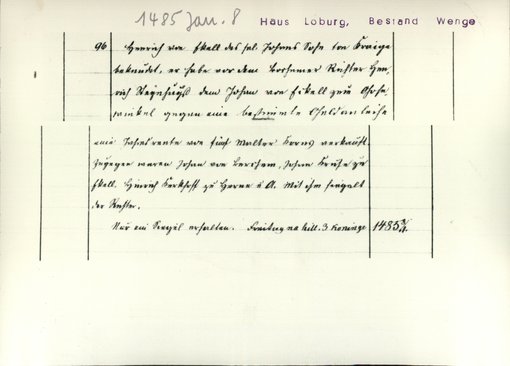 1485 Jan. 8 Haus Loburg, Bestand Wenge
96 Henrich von Ekell des sel. Johans Sohn ton Kraige
bekundet, er habe vor dem Borchemer Richter Hen,
rich Steinhuß dem Johan von Eikell zum Ohose
winkel gegen eine bestimmte Geldanleihe
eine Jahresrente von fünf Malter Korns verkauft.
Zugegen waren Johan von Berchem, Johan Kruse zu
Ekell. Hinrich Kerkhoff zu Herne u A. Mit ihm siegelt
der Richter.
Nur ein Siegel erhalten. Freitag na hill. 3 Koninge 1485 8/1.